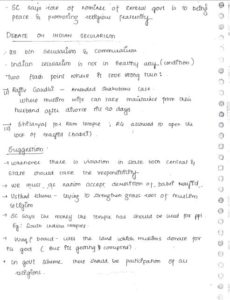 - SC says role of nominee of central govt is to bring
peace & promoting religious fraternity.
DEBATE ON INDIAN SECULARISM
→ on b/n secularism & communalism
→ Indian secularism is not in healthy way (condition)
Two flash point where it goes wrong turn:
i) Rajiv Gandhi - amended Shahbano case
where muslim wife can take maintainance from their
husband after divorce 90 days
ii) Shilanyas for Ram temple, RG allowed to open the
lock of masjid (babri).
Suggestion
→ whenever there is violation in state both central &
state should take the responsibility.
→ we must, as nation accept demolition of babri masjid.
→ scheme - trying to strengthen grass-root of muslim
religion
→ SC says the money the temple has should be used for ppl
Eg: South Indian temples
→ Waqf board - uses the land which muslims donate for
his god (but its getting corrupted)
→ In govt scheme, there should be participation of all
religions.